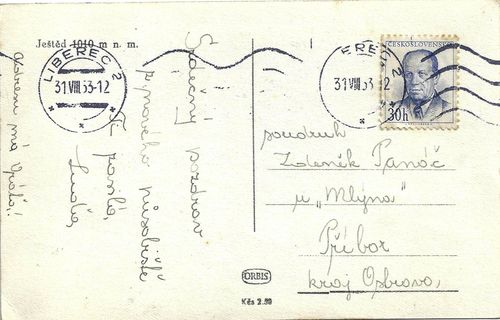 Ještěd 1010 m n. m.
LIBEREC 2
31.VIII.53-12
Srdečný pozdrav
z nového působiště
Ti posílá
ČESKOSLOVENSKO
30h
LIBEREC 2
31.VIII.53-12
soudruh
Zdeněk Panáč
u „Mlýna"
Příbor
kraj Ostrava,
ORBIS
Kčs 2.20